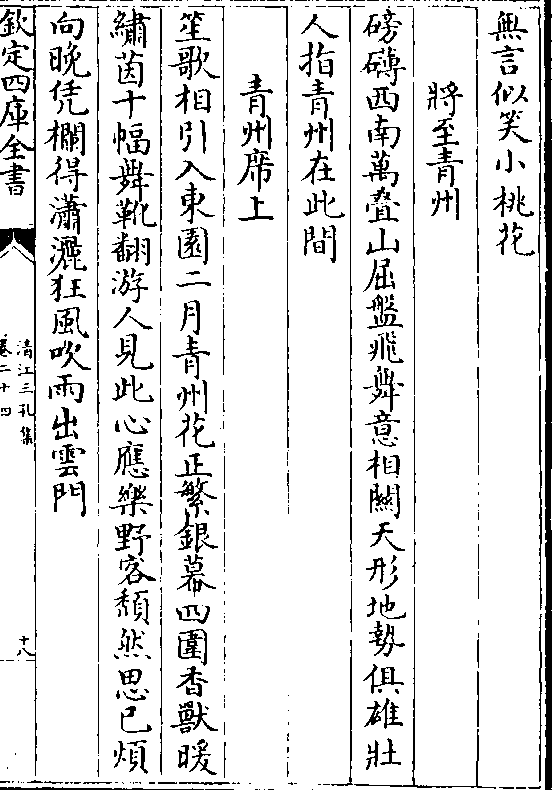 無言似笑小桃花
將至青州
磅礴西南萬疊山屈盤飛舞意相關天形地勢俱雄壯
人指青州在此間
青州席上
笙歌相引入東園二月青州花正繁銀幕四圍香獸暖
繡茵十幅舞靴翻游人見此心應樂野客頹然思已煩
向晚凭欄得瀟灑狂風吹雨出雲門
欽定四庫全書
清江三孔集
卷二十四
十八